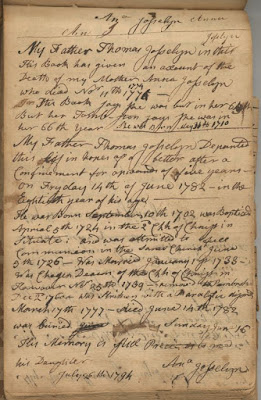 Any Josselyn Anna
Josselyn
My Father Thomas Josselyn in this
This Book has given an account of the
Death of my Mother Anna Josselyn
who died Nov 11th 1774
This Book Says she was but in her
But her Tomb Says she was in
her 66th Year
1710
My Father Thomas Josselyn Departed
this Life in hopes of a better after a
Confinement for upwards of five years
on Fryday 14th of June 1782 in the
Eightieth year of his age
He was Born September 10th 1702 was Baptised
April 5th 1724 in the 2d Chh of Christ in
Scituate and was admitted to
Communion in the Same Church
7th 1726 Was Married January 1st 1738
Was Chosen Deacon of the Chh of Christ in
Hanover Nov 23th 1739 removed to Pembroke
was Struck with a Paralise
March 17th 1777 Died June 14th 1782
was buried Sunday Jun 16
His Memory is
his Daughter Anna
July 6th 1794 Josselyn